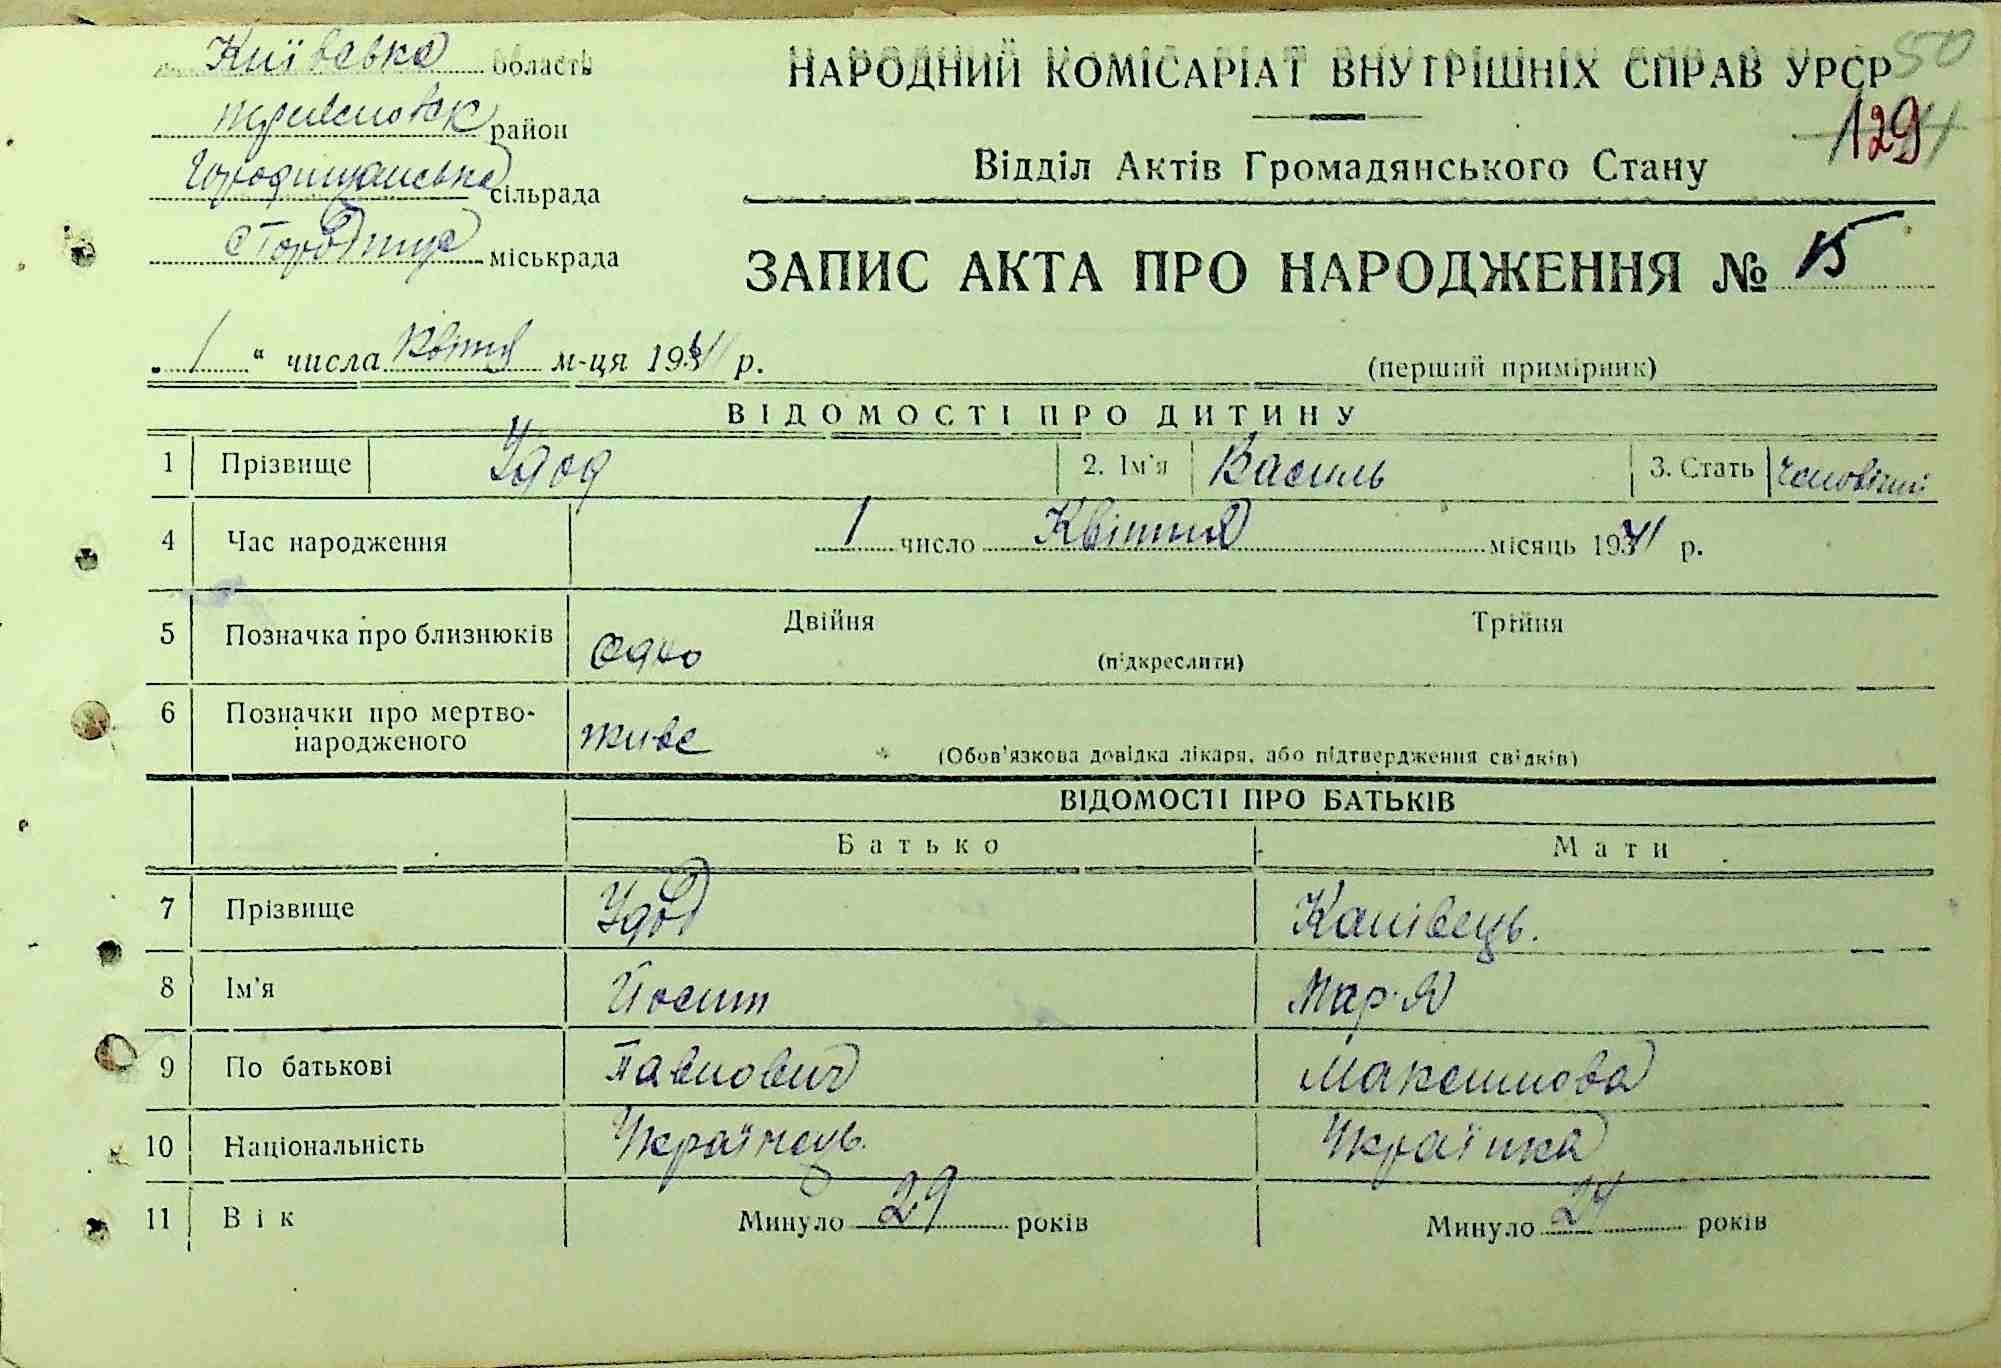 Київська область
район
Городищанська сільрада
с Городище міськрада
НАРОДНИЙ КОМІСАРІАТ ВНУТРІШНІХ СПРАВ УРСР
50
129
Відділ Актів Громадянського Стану
ЗАПИС АКТА ПРО НАРОДЖЕННЯ № 15
„ 1 “ числа квітня м-ця 1941 р.
(перший примірник)
ВІДОМОСТІ ПРО ДИТИНУ
1 Прізвище Удод 2. Ім'я Василь 3. Стать
4 Час народження 1 число Квітня місяць 1941 р.
5 Позначка про близнюків одно Двійня (підкреслити) Трійня
6 Позначки про мертво-
народженого живе (Обов'язкова довідка лікаря, або підтвердження свідків)
ВІДОМОСТІ ПРО БАТЬКІВ
Батько Мати
7 Прізвище Удод Канівець.
8 Ім'я Йосип Мар'я
9 По батькові Павлович Максимова
10 Національність Українець. Українка
11 Вік Минуло 29 років Минуло 24 років